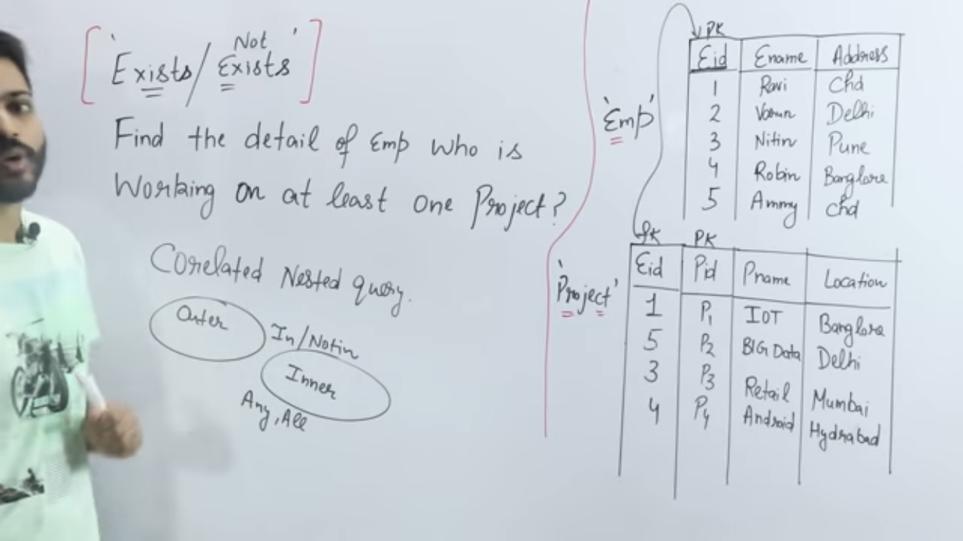 ['Exists/ Not Exists']
Find the detail of Emp who is
Working on at least one Project?
Corelated Nested query.
Outer
In/Notin
Inner
Any, All
'Emp'
PK
Eid Ename Address
1 Ravi Chd
2 Varun Delhi
3 Nitin Pune
4 Robin Banglore
5 Ammy Chd
'Project'
fk PK
Eid Pid Pname Location
1 P1 IOT Banglore
5 P2 BIG Data Delhi
3 P3 Retail Mumbai
4 P4 Android Hydrabad